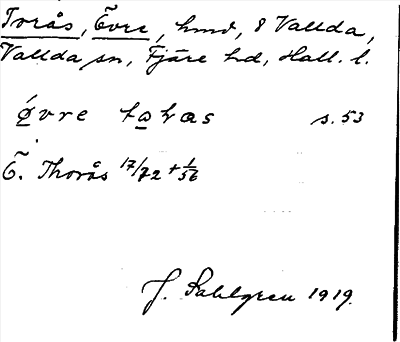 Torås, Övre, hmd, 8 Vallda,
Vallda sn, Fjäre hd, Hall. l.
øvre toras s. 53
Ö. Thorås 17/72 + 1/56
J. Sahlgren 1919.